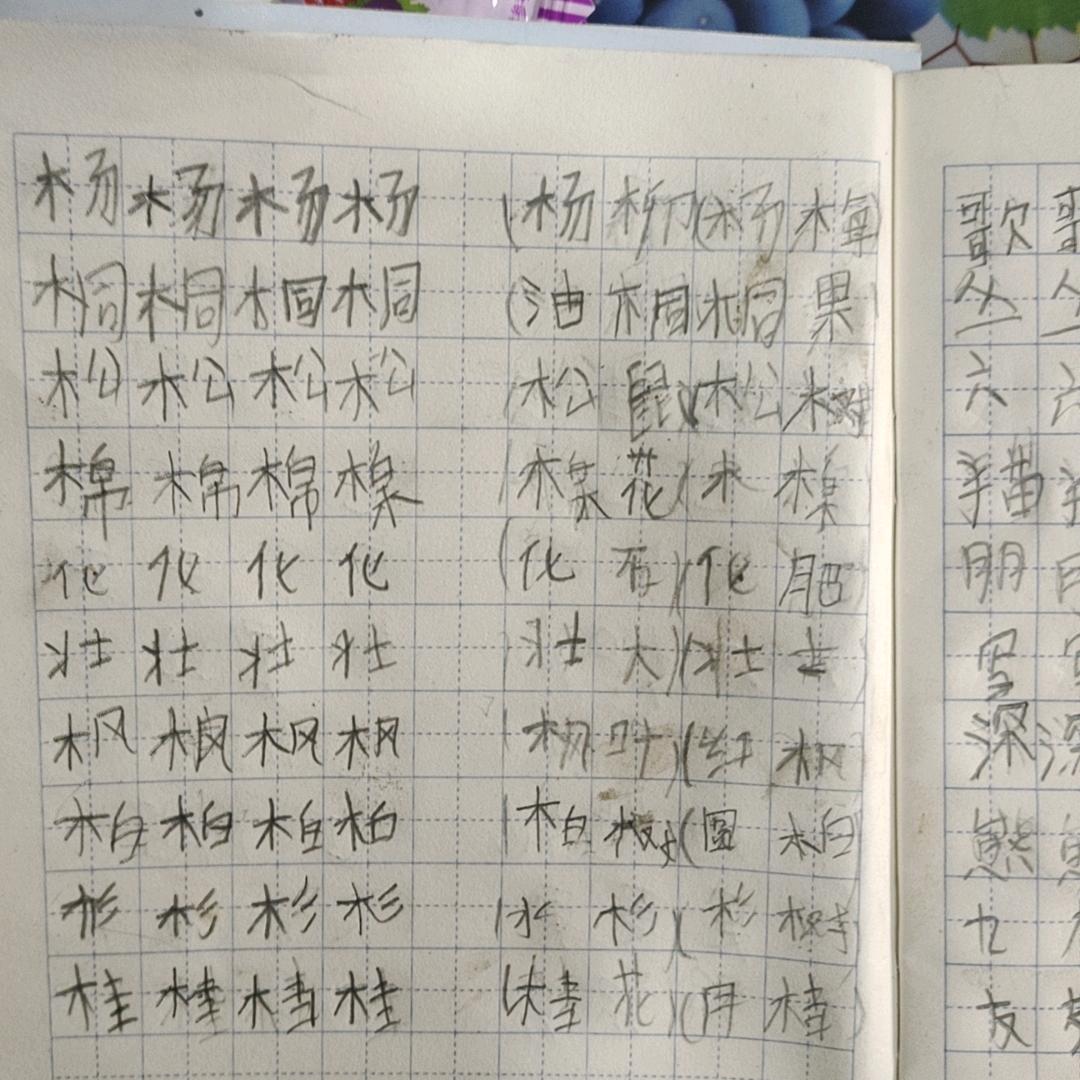 杨杨杨杨(杨柳)(杨梅)
桐桐桐桐(油桐)(桐果)
松松松松(松鼠)(松树)
棉棉棉棉(棉花)(木棉)
化化化化(化石)(化肥)
壮壮壮壮(壮大)(壮士)
枫枫枫枫(枫叶)(红枫)
柏柏柏柏(柏树)(圆柏)
杉杉杉杉(水杉)(杉树)
桂桂桂桂(桂花)(月桂)
歌
丛
六
猫
朋
写
深
熊
九
友